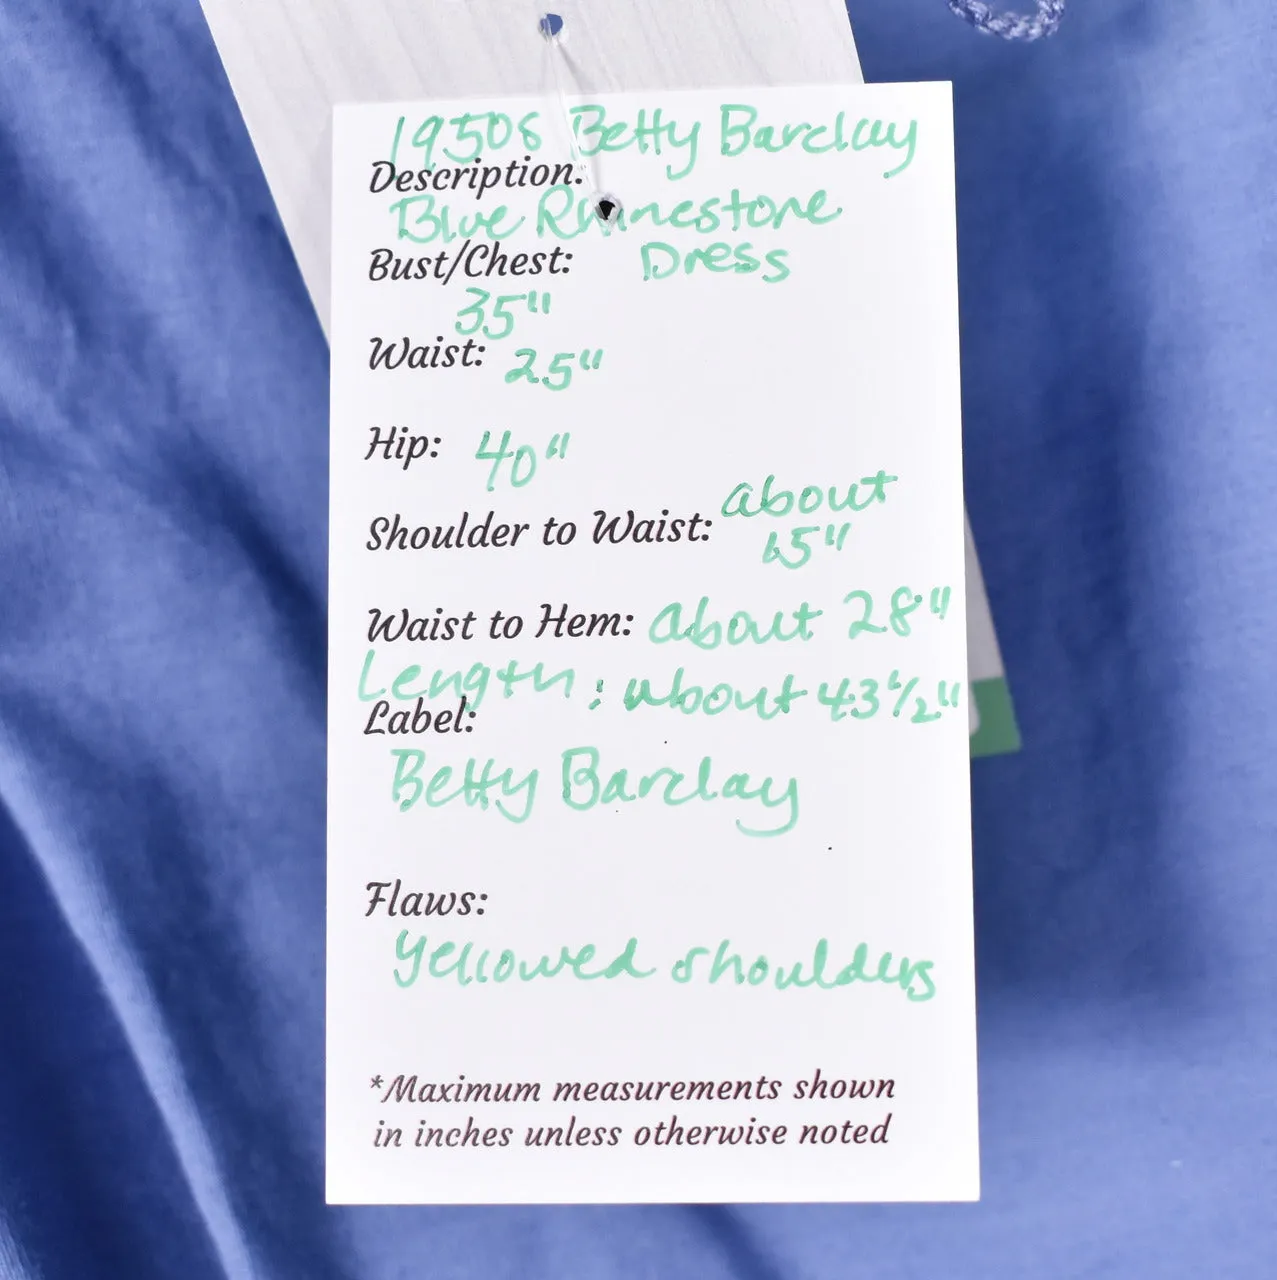 1950s Betty Barclay
Description:
Blue Rhinestone
Bust/Chest: Dress
35"
Waist: 25"
Hip: 40"
Shoulder to Waist: about
15"
Waist to Hem: about 28"
Length: about 43 1/2"
Label:
Betty Barclay
Flaws:
Yellowed shoulders
*Maximum measurements shown
in inches unless otherwise noted